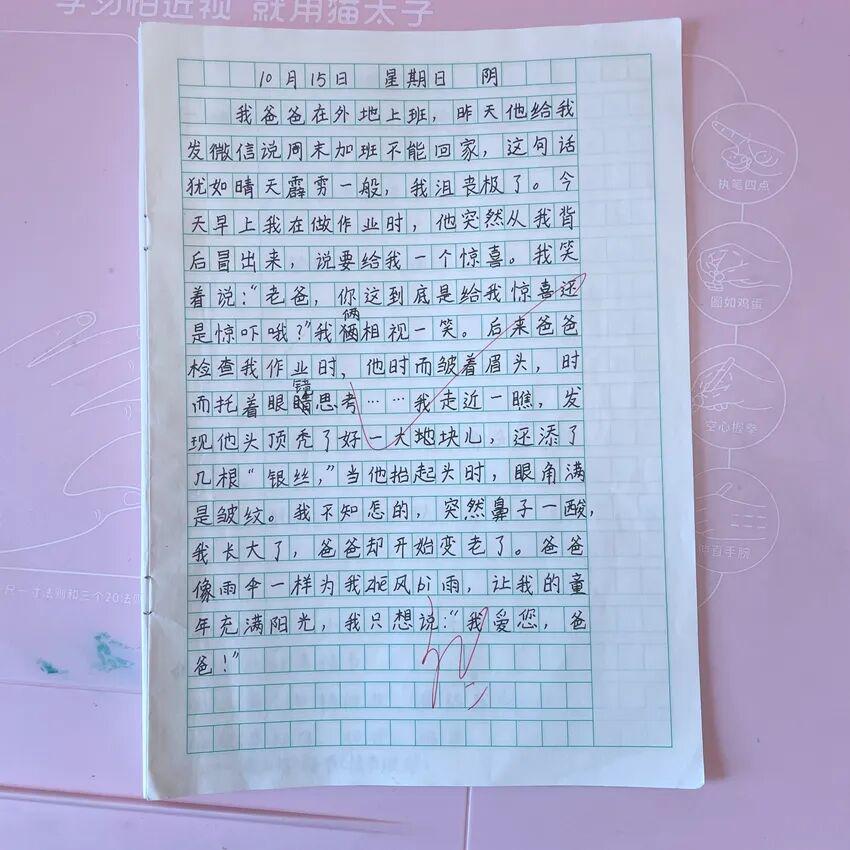 学习怕近视 就用猫太子
10月15日 星期日 阴
我爸爸在外地上班，昨天他给我
发微信说周末加班不能回家，这句话
犹如晴天霹雳一般，我沮丧极了。今
天早上我在做作业时，他突然从我背
后冒出来，说要给我一个惊喜。我笑
着说：“老爸，你这到底是给我惊喜还
是惊吓哦？”我俩相视一笑。后来爸爸
检查我作业时，他时而皱着眉头，时
而托着眼镜思考……我走近一瞧，发
现他头顶秃了好一大地块儿，还添了
几根“银丝，”当他抬起头时，眼角满
是皱纹。我不知怎的，突然鼻子一酸，
我长大了，爸爸却开始变老了。爸爸
像雨伞一样为我zhē风bì雨，让我的童
年充满阳光，我只想说：“我爱您，爸
爸！”
执笔四点
圆如鸡蛋
空心握拳
伸直手腕
尺一寸法则和三个20法则